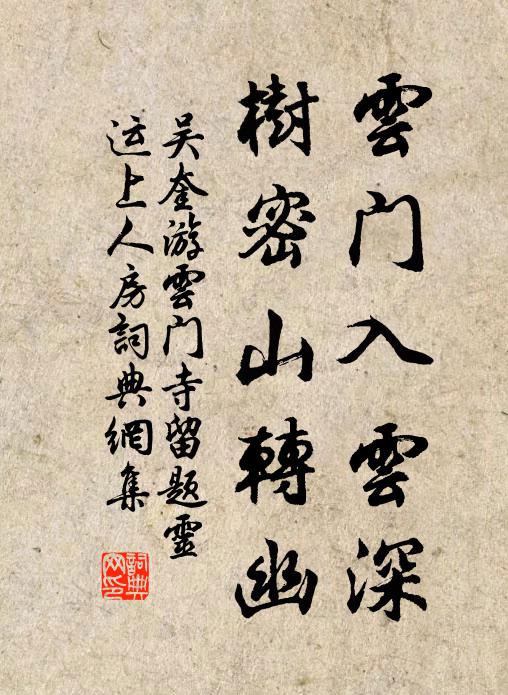 雲门入雲深
樹密山轉幽
吴奎游雲门寺留题靈
运上人房詞典網集
詞典网印